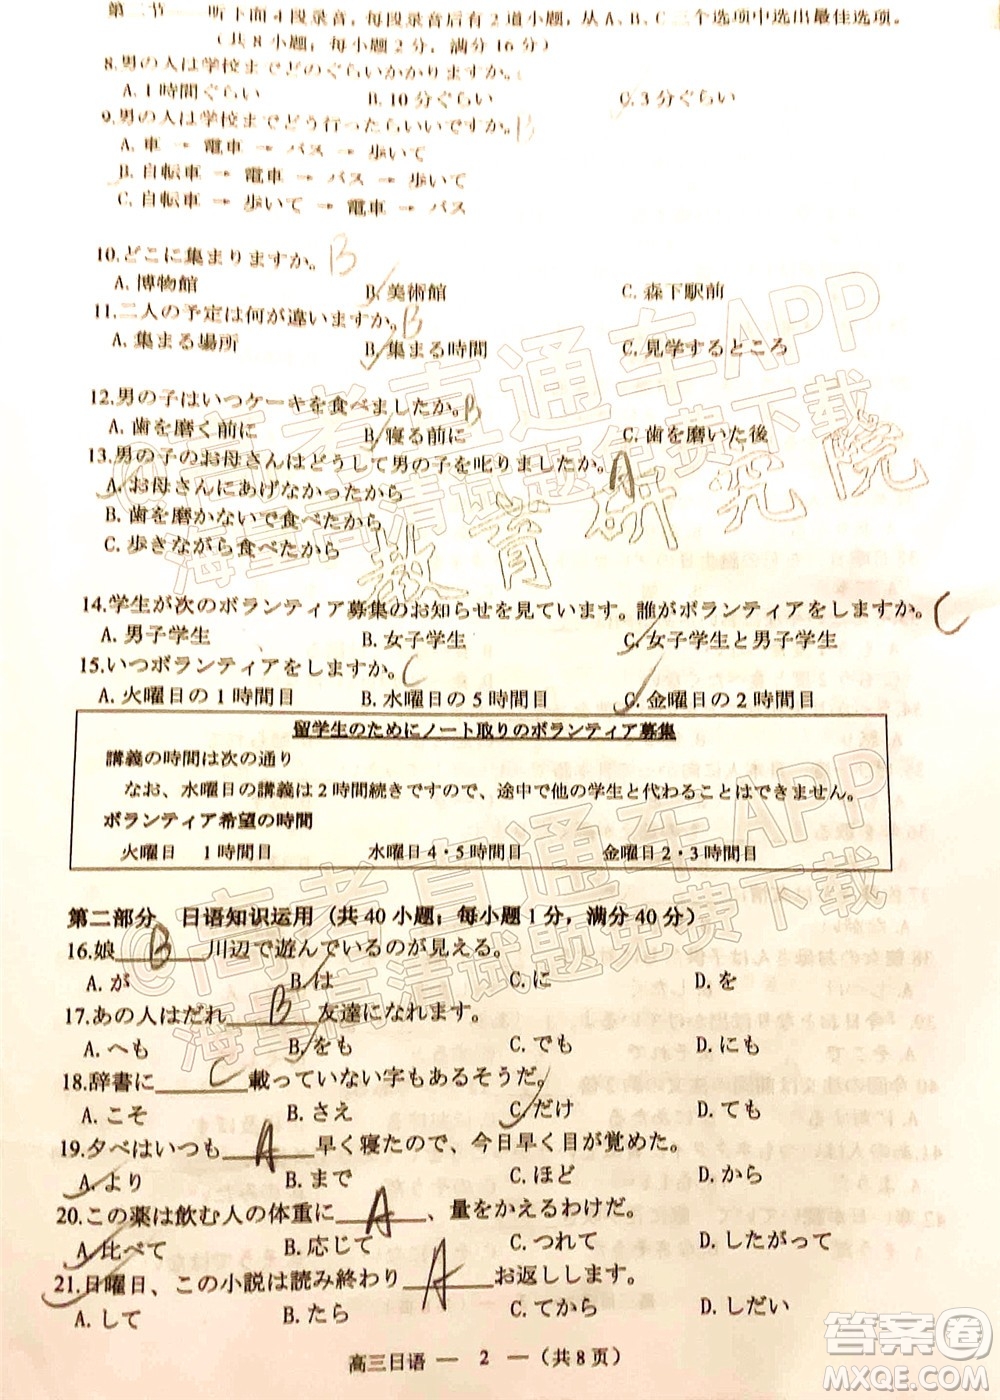 第二节 听下面4段录音，每段录音后有2道小题，从A、B、C三个选项中选出最佳选项。
（共8小题；每小题2分，满分16分）
8.男の人は学校までどのぐらいかかりますか。
A.1時間ぐらい B.10分ぐらい C.3分ぐらい
9.男の人は学校までどう行ったらいいですか。B
A.車 → 電車 → バス → 歩いて
B.自転車 → 電車 → バス → 歩いて
C.自転車 → 歩いて → 電車 → バス
10.どこに集まりますか。B
A.博物館 B.美術館 C.森下駅前
11.二人の予定は何が違いますか。B
A.集まる場所 B.集まる時間 C.見学するところ
12.男の子はいつケーキを食べましたか。B
A.歯を磨く前に B.寝る前に C.歯を磨いた後
13.男の子のお母さんはどうして男の子を叱りましたか。A
A.お母さんにあげなかったから
B.歯を磨かないで食べたから
C.歩きながら食べたから
14.学生が次のボランティア募集のお知らせを見ています。誰がボランティアをしますか。C
A.男子学生 B.女子学生 C.女子学生と男子学生
15.いつボランティアをしますか。C
A.火曜日の1時間目 B.水曜日の5時間目 C.金曜日の2時間目
留学生のためにノート取りのボランティア募集
講義の時間は次の通り
なお、水曜日の講義は2時間続きですので、途中で他の学生と代わることはできません。
ボランティア希望の時間
火曜日 1時間目 水曜日4・5時間目 金曜日2・3時間目
第二部分 日语知识运用（共40小题；每小题1分，满分40分）
16.娘 B 川辺で遊んでいるのが見える。
A.が B.は C.に D.を
17.あの人はだれ B 友達になれます。
A.へも B.をも C.でも D.にも
18.辞書に C 載っていない字もあるそうだ。
A.こそ B.さえ C.だけ D.ても
19.夕べはいつも A 早く寝たので、今日早く目が覚めた。
A.より B.まで C.ほど D.から
20.この薬は飲む人の体重に A 、量をかえるわけだ。
A.比べて B.応じて C.つれて D.したがって
21.日曜日、この小説は読み終わり A お返しします。
A.して B.たら C.てから D.しだい
高三日语 — 2 —（共8页）
@高考直通车APP
海量高清试题免费下载
教育研究院
@高考直通车APP
海量高清试题免费下载
答案圈